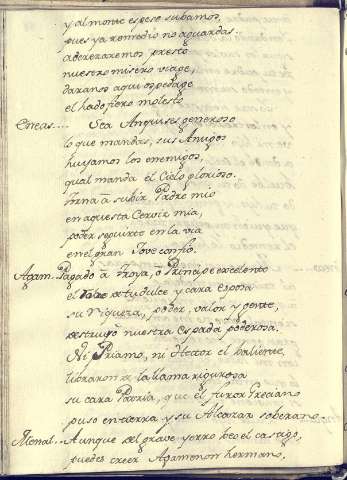 y al monte espeso subamos,
pues ya remedio no aguardas.
aderezaremos presto
nuestro misero viage,
daranos aqui ospedage
el hado fiero molesto
Eneas.... Sea Anquises generoso
lo que mandas, sus Amigos
huyamos los enemigos,
qual manda el Cielo glorioso.
Torna à subir Padre mio
en aquesta Cerviz mia,
poder seguirte en la via
en el gran Jove confio.
Agam.. Pagado à Troya, ò Principe excelente
el de tu dulce y cara esposa
su riqueza, poder, valor y gente,
destruyò nuestra Espada poderosa.
Ni Priamo, ni Hector el baliente,
libraron de la llama rigurosa
su cara Patria, que el furor Greciano
puso en tierra y su Alcazar soberano.
Menal.. Aunque del grave yerro beo el castigo,
puedes creer Agamenon hermano,